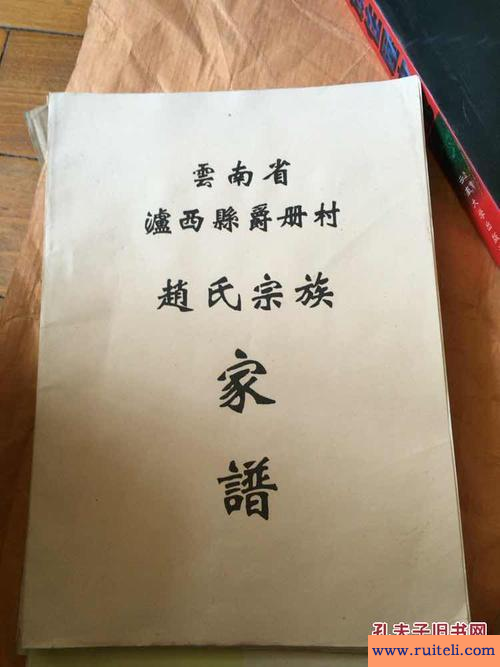 雲南省
瀘西縣爵册村
趙氏宗族
家
譜
大学出版
孔夫子旧书网
www.ruiteli.com